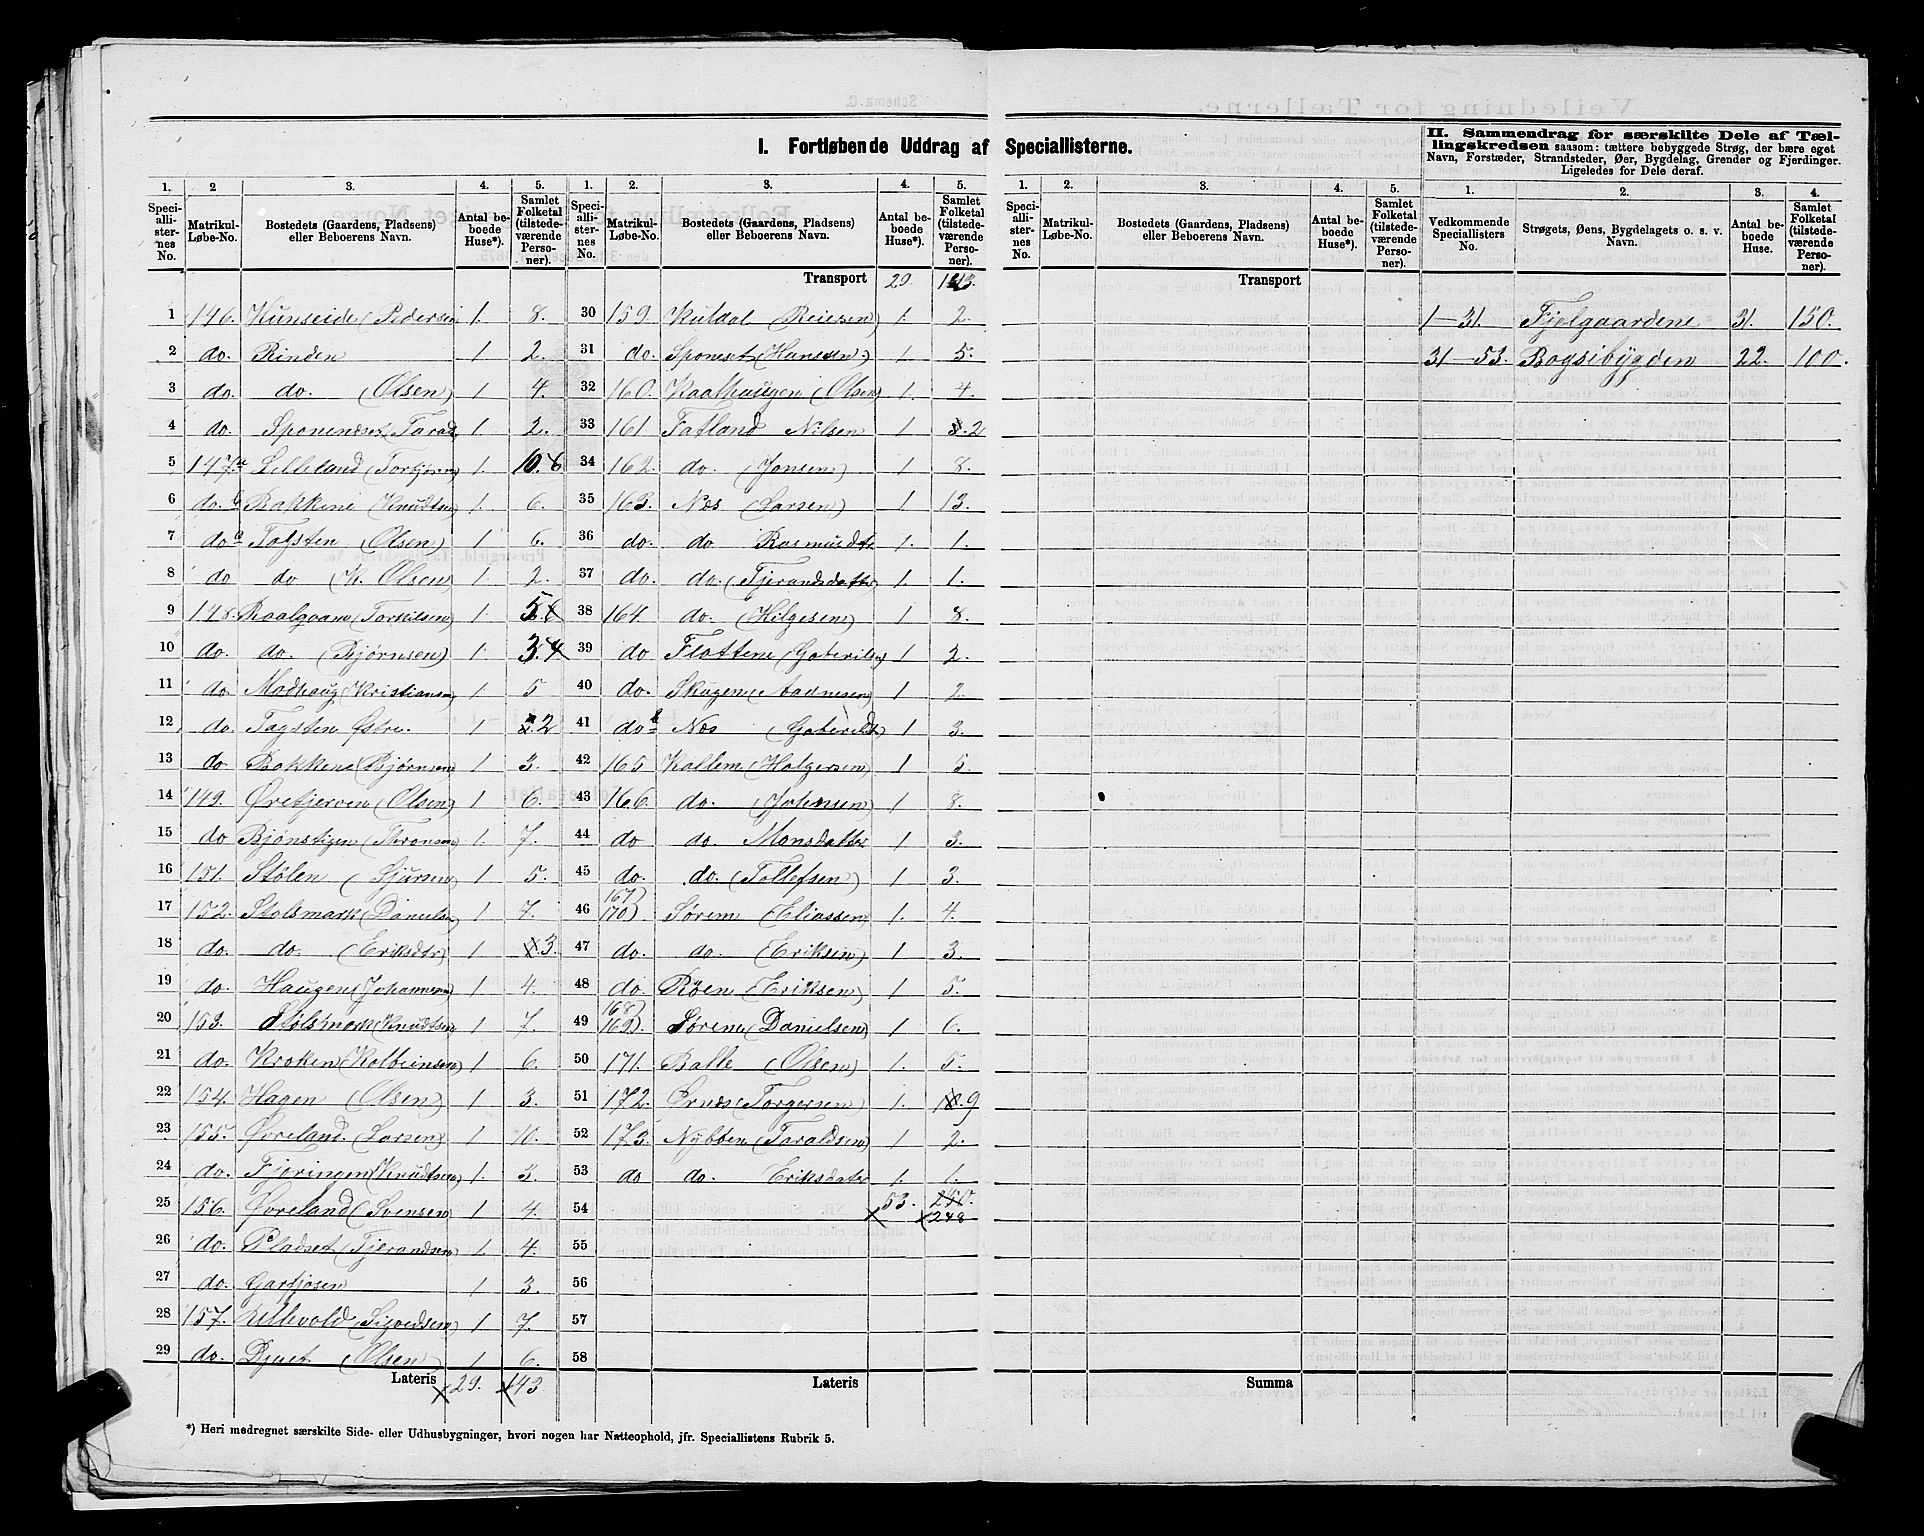 I. Fortløbende Uddrag af Speciallisterne.
II. Sammendrag for særskilte Dele af Tæl-
lingskredsen saasom: tættere bebyggede Strøg, der bære eget
Navn, Forstæder, Strandsteder, Øer, Bygdelag, Grender og Fjerdinger.
Ligeledes for Dele deraf.
1. 2 3. 4. 5.
Speciallisternes No. Matrikul-Løbe-No. Bostedets (Gaardens, Pladsens) eller Beboerens Navn. Antal beboede Huse*). Samlet Folketal (tilstedeværende Personer).
1 146. Kunseide (Pedersen 1. 8.
2 do. Rinden 1 2.
3 do. do. (Olsen) 1 4.
4 do. 1. 2.
5 147.a Lilleland (Torbjørn) 1. 10. 8
6 do. b Bakkene (Knudtsen) 1. 6.
7 do Tagsten (Olsen) 1 6.
8 do do (K. Olsen) 1. 2.
9 148. (Torkilsen) 1 5.
10 do. do. (Bjørnsen) 1. 3. 4
11 do. Modhaug (Kristiansen) 1. 5
12 do. Tagsten Østre. 1 2
13 do Bakkene (Bjørnsen) 1 3.
14 149. (Olsen) 1 6.
15 do Bjønstigen 1. 7.
16 151. Stølen (Sjursen) 1 5.
17 152. Stølsmark (Danielsen 1 7.
18 do. do. (Eriksdtr) 1 3.
19 do. Haugen (Johannesen) 1 4.
20 153. Stølsmark (Knudtsen 1 7.
21 do. Kroken (Kolbeinsen) 1 6.
22 154. Hagen (Olsen) 1 3.
23 155. Øvreland (Larsen) 1 10.
24 do. Fjeringen (Knudtsen) 1. 3.
25 156. Øvreland (Svensen) 1 4.
26 do. Pladset (Tjerandsen) 1 4.
27 do. Garfjosen 1 3.
28 157. Ullevold (Sigvedsen) 1 7.
29 do. (Olsen) 1 6.
Lateris 29. 143
1. 2. 3. 4. 5.
Speciallisternes No. Matrikul-Løbe-No. Bostedets (Gaardens, Pladsens) eller Beboerens Navn. Antal beboede Huse*). Samlet Folketal (tilstedeværende Personer).
Transport 29. 143.
30 159. (Reiersen) 1. 2.
31 do. (Hansen) 1 5.
32 160. Kaalhaugen (Olsen) 1. 4.
33 161. Fatland Nilsen 1 2
34 162. do. (Jonsen) 1 8.
35 163. Næs (Larsen) 1 13.
36 do. do Rasmusdtr 1. 1.
37 do. do. (Tjerandsdatter) 1. 1.
38 164. do. (Helgesen) 1 8.
39 do Flottene (Gabrielsen) 1 2.
40 do. Skugen (Aadnesen) 1 2.
41 do Næs 1 3.
42 165 Kallem (Holgersen) 1 5.
43 166. do. (Johnsen) 1 8.
44 do do. Monsdatter 1 3.
45 do. do. (Tollefsen) 1 3.
167)
46 170). Sørem (Eliassen) 1. 4.
47 do. do. (Eriksen) 1 3.
48 do. Røen (Eriksen) 1 5.
168)
49 169). Sørem (Danielsen) 1 6.
50 171. Balle (Olsen) 1. 5.
51 172. Ørnæs (Torgersen) 1. 9
52 173. Nybben (Taraldsen) 1 2.
53 do do. Eriksdatr 1. 1.
54 53. 250.
248
55
56
57
58
Lateris
1. 2. 3. 4. 5.
Speciallisternes No. Matrikul-Løbe-No. Bostedets (Gaardens, Pladsens) eller Beboerens Navn. Antal beboede Huse*). Samlet Folketal (tilstedeværende Personer).
Transport
Summa
1. 2. 3. 4.
Vedkommende Speciallisters No. Strøgets, Øens, Bygdelagets o. s. v. Navn. Antal beboede Huse. Samlet Folketal (tilstedeværende Personer).
1—31. Fjelgaardene 31. 150.
31—53. Bogsibygden 22. 100.
*) Heri medregnet særskilte Side- eller Udhusbygninger, hvori nogen har Natteophold, jfr. Speciallistens Rubrik 5.